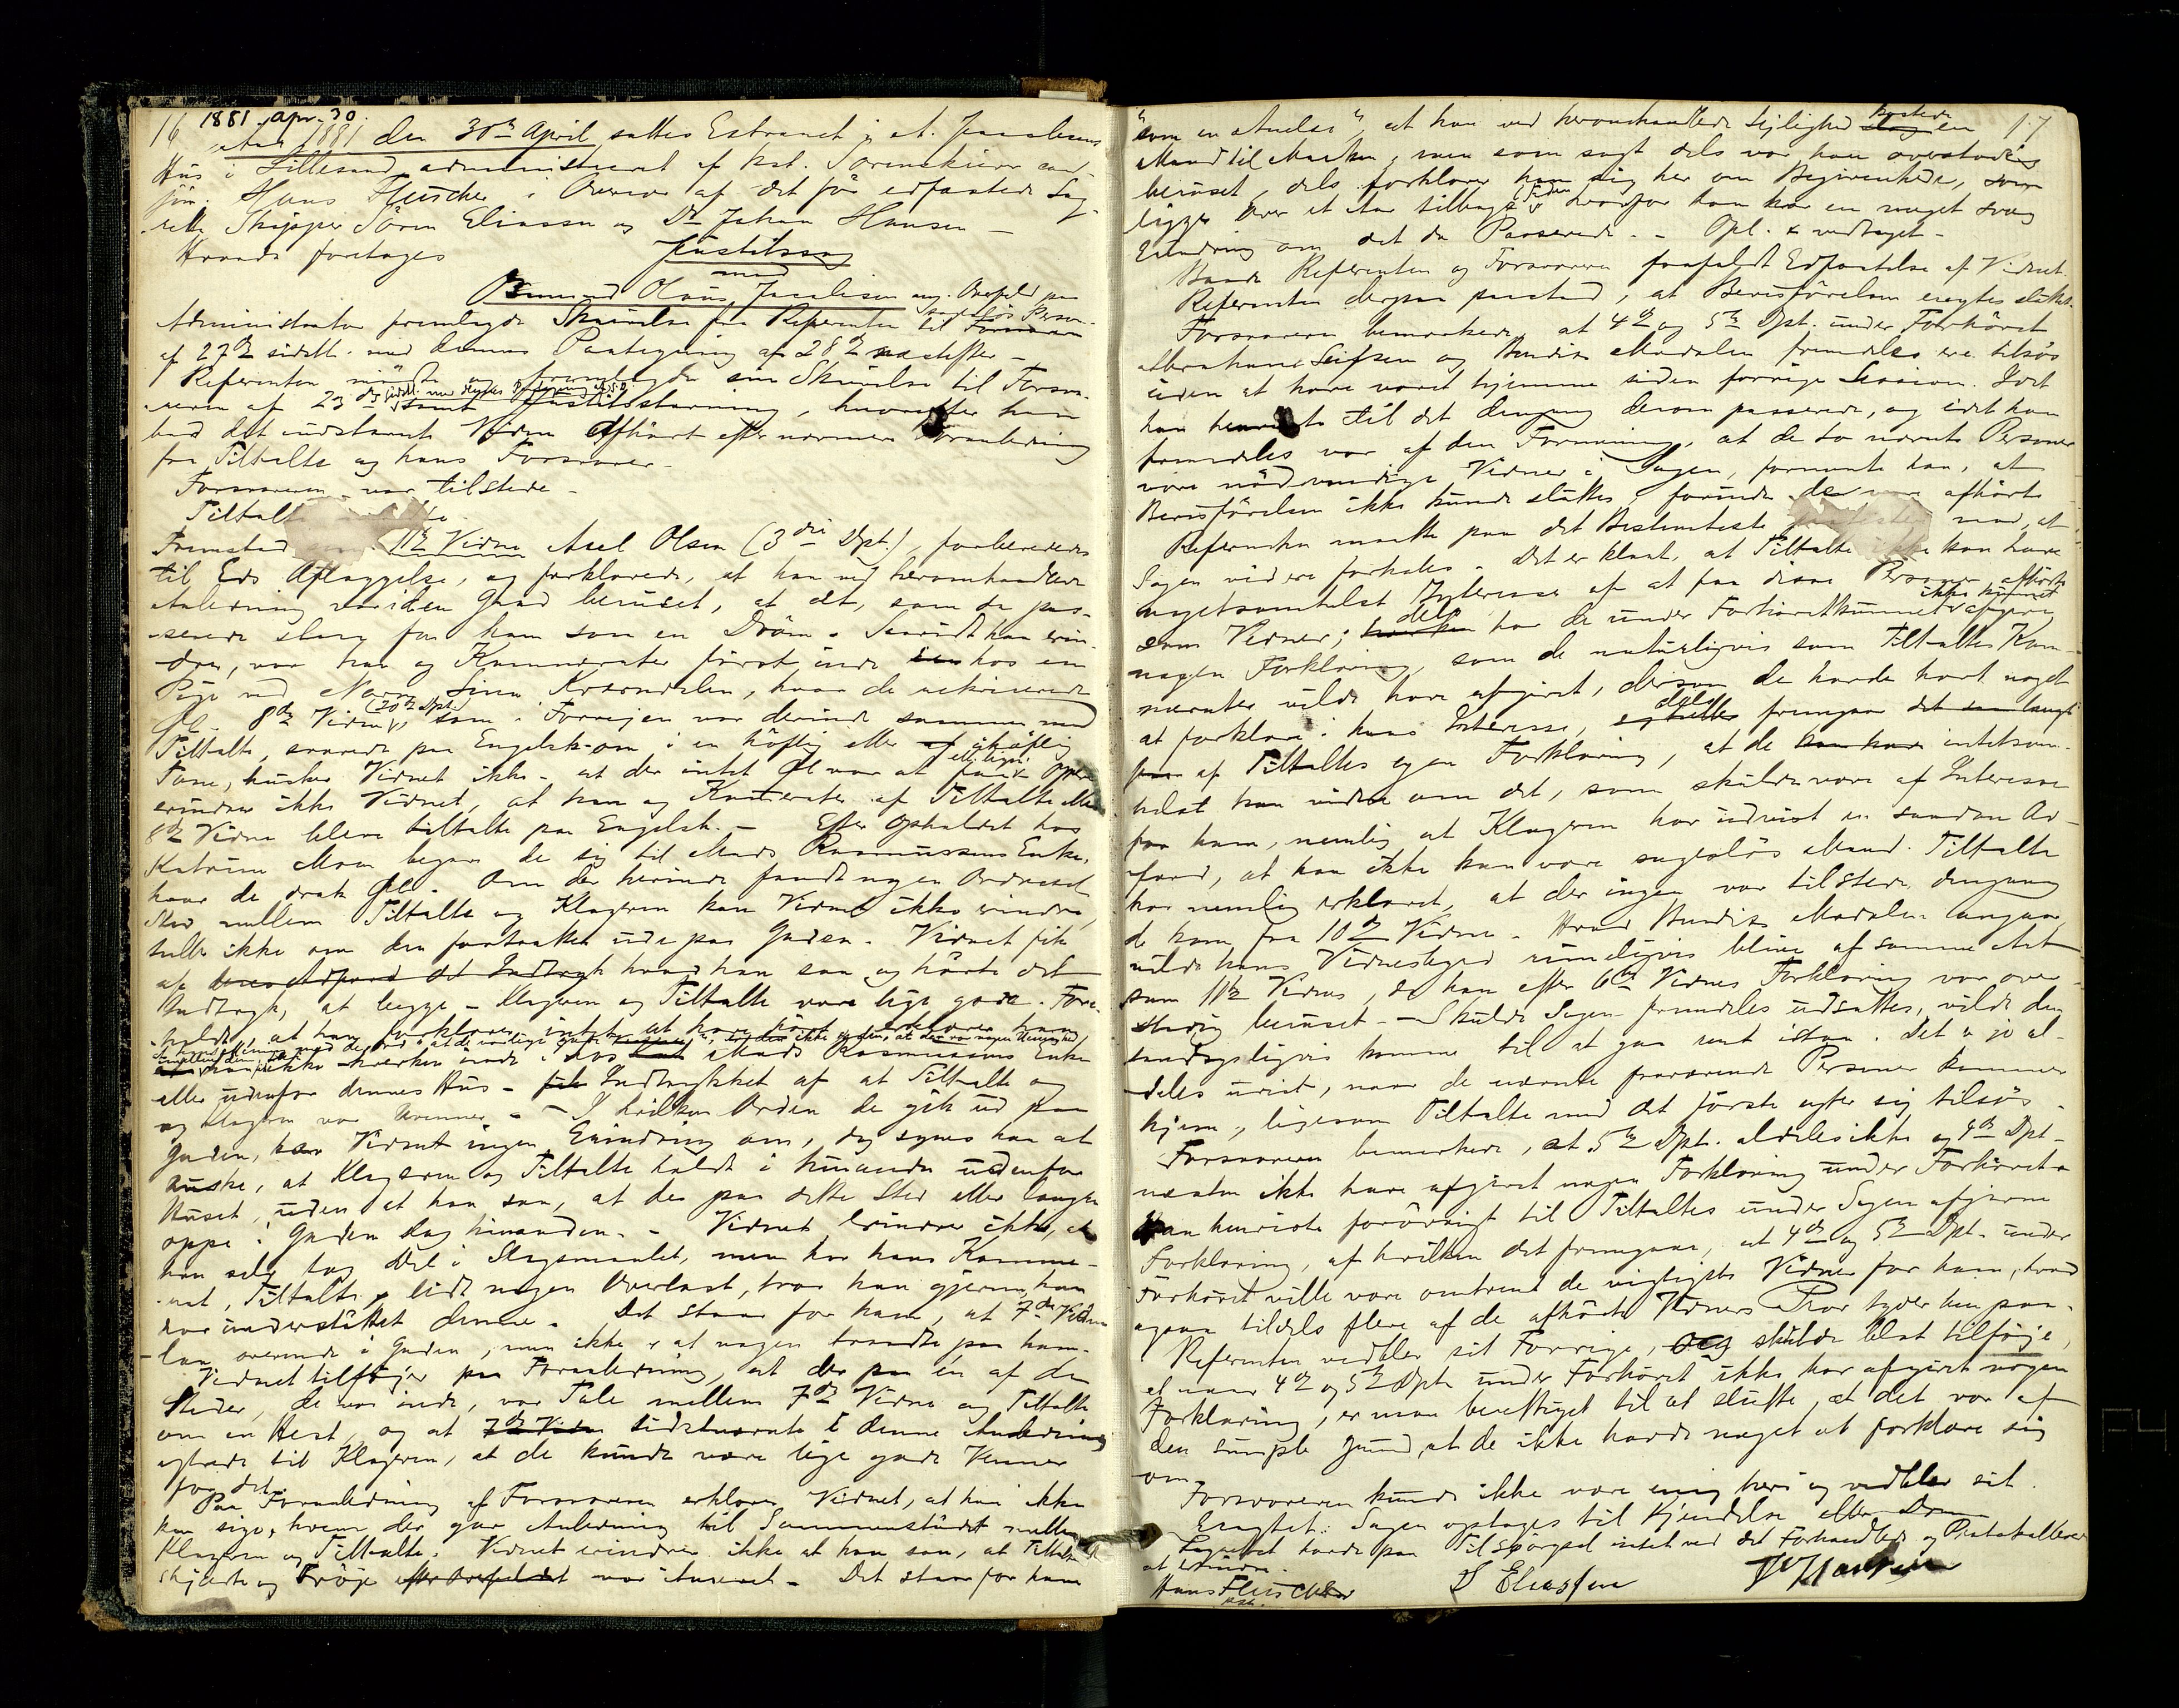 16 1881. apr. 30.
Aar 1881 den 30te April sattes Extraret i st. Jacobsens
Hus i Lillesand administreret af kst. Sorenskriver cand.
jur. Hans Fleischer i Overvær af det før edfæstede Lag-
rette Skipper Sören Eliassen og Do Johan Hansen –
Hvorda foretoges Justitssag
mod
Osmund Olaus Jacobsen ang. Overfald paa
sagesløs Person.
Administrator fremlagde Skrivelse fra Referenten til
af 27de sidstl. med dennes Paategning af 28de næstefter –
Referenten mødte og fremlagde sin Skrivelse til Forsva-
reren af 23de sidstl. med dennes Paategning samt Justitsstævning, hvorefter han
bad det indstævnte Vidne afhørt efter nærmere Foranledning
fra Tiltalte og hans Forsvarer.
Forsvareren var tilstede –
Tiltalte
Fremstod som 11te Vidne Axel Olsen (3die Dpt.), forberededes
til Eds Aflæggelse, og forklarede, at han ved heromhandlede
Anledning var i den Grad beruset, at det, som da pas-
serede staar for ham som en Drøm. Saavidt han erin-
drer, var han og Kammerater først inde hos en
Pige ved Navn Sina Kværndalen, hvor de rekvirerede
Øl. 8de Vidne (20de Dpt.), som i Forvejen var derinde sammen med
Tiltalte, svarede paa Engelsk – om i en høflig eller uhøflig
Tone, husker Vidnet ikke – at der intet Øl var at faa.
erindrer ikke Vidnet, at han og Kamerater af Tiltalte eller
8de Vidne bleve tiltalte paa Engelsk. – Efter Opholdet hos
Katrine Moen begav de sig til Mads Rasmussens Enke,
hvor de drak Øl. Om der herinde fandt nogen Ordvexel
Sted mellem Tiltalte og Klageren kan Vidnet ikke erindre,
heller ikke om den fortsattes ude paa Gaden. Vidnet fik
af deres Adfærd det Indtryk hvad han saa og hørte det
Indtryk, at begge – Klageren og Tiltalte vare lige gode. Fore-
holdt, at han forklarer intet at have hørt erklærer han
at han ikke hverken inde i hos Mads Rasmussens Enke
eller udenfor dennes Hus – fik Indtrykket af at Tiltalte og
og Klageren var Uvenner. – I hvilken Orden de gik ud paa
Gaden, har Vidnet ingen Erindring om, dog synes han at
huske, at Klageren og Tiltalte holdt i hinanden udenfor
Huset, uden at han saa, at de paa dette Sted eller længer
oppe i Gaden slog hinanden. – Vidnet erindrer ikke, at
han selv tog Del i Slagsmaalet, men har hans Kamme-
rat, Tiltalte, lidt nogen Overlast, tror han gjerne, han
har understøttet denne. Det staar for ham, at 7de Vidne
laa overende i Gaden, men ikke at nogen traadte paa ham.
Vidnet tilføjer paa Foranledning, at der paa en af de
Steder, de var inde, var Tale mellem 7de Vidne og Tiltalte
om en Hest, og at 7de Vidne sidstnævnte i denne Anledning
ytrede til Klageren, at de kunde være lige gode Venner
for det.
Paa Foranledning af Forsvareren erklærer Vidnet, at han ikke
kan sige, hvem der gav Anledning til Sammenstødet mellem
Klageren og Tiltalte. Vidnet erindrer ikke at han saa, at Tiltaltes
Skjorte og Trøje efter Overfaldet var itureven. – Det staar for ham
"som en Anelse", at han ved heromhandlede Lejlighed kastede slog en 17
Mand til Marken, men som sagt dels var han overstadig
beruset, dels forklarer han sig her om Begivenheder, som
ligger over et Aar tilbage i Tiden hvorfor han har en meget svag
Erindring om det da Passerede. – Opl. & vedtaget –
Baade Referenten og Forsvareren frafaldt Edfæstelse af Vidnet.
Referenten derpaa paastod, at Bevisførelsen eragtes sluttet.
Forsvareren bemærkede, at 4de og 5te Dpt. under Forhøret
Abraham Leifsen og Bendix Modalen fremdeles ere tilsøs
uden at have været hjemme siden forrige Session. Idet
han henviste til det dengang derom passerede, og idet han
fremdeles var af den Formening, at de to nævnte Personer
vare nødvendige Vidner i Sagen, formente han, at
Bevisførelsen ikke kunde sluttes, forinden de afhørte
Referenten maatte paa det Bestemteste mod, at
Sagen videre forhales. Det er klart, at Tiltalte ikke kan have
nogetsomhelst Interesse af at faa disse Personer afhørte
som Vidner; dels har de under Forhøret ikke kunnet afgive
nogen Forklaring, som de naturligvis som Tiltaltes Kam-
merater vilde have afgivet, dersom de havde havt noget
at forklare i hans Interesse, dels fremgaar det
af Tiltaltes egen Forklaring, at de intetsom-
helst kan vidne om det, som skulde være af Interesse
for ham, nemlig at Klageren har udvist en saadan Ad-
færd, at han ikke kan være sagesløs Mand. Tiltalte
har nemlig erklæret, at der ingen var tilstede dengang
de kom fra 10de Vidne. Hvad Bendix Modalen angaar,
vilde hans Vidnesbyrd rimeligvis blive af samme Art
som 11te Vidnes, da han efter 6te Vidnes Forklaring var over-
stadig beruset. – Skulde Sagen fremdeles udsættes, vilde den
sandsynligvis komme til at gaa rent istaa. Det er jo al-
deles uvist, naar de nævnte fraværende Personer kommer
hjem, ligesom Tiltalte med det første agter sig tilsøs.
Forsvareren bemærkede, at 5te Dpt. aldeles ikke og 4de Dpt.
næsten ikke have afgivet nogen Forklaring under Forhøret.
Han henviste forøvrigt til Tiltaltes under Sagen afgivne
Forklaring, af hvilken det fremgaar, at 4de og 5te Dpt. under
Forhøret ville være omtrent de vigtigste Vidner for ham, hvad
ogsaa tildels flere af de afhørte Vidners Prov tyder hen paa.
Referenten vedblev sit Forrige, og skulde blot tilføje,
at naar 4de og 5te Dpt. under Forhøret ikke har afgivet nogen
Forklaring, er man berettiget til at slutte, at det var af
den simple Grund, at de ikke havde noget at forklare sig
om.
Forsvareren kunde ikke være enig heri og vedblev sit.
Eragtet: Sagen optages til Kjendelse eller Dom
Lagrettet havde paa Tilspørgsel intet ved det Forhandlede og Protokollerede
at erindre.
Hans Fleischer S Eliassen J Hansen
kst.